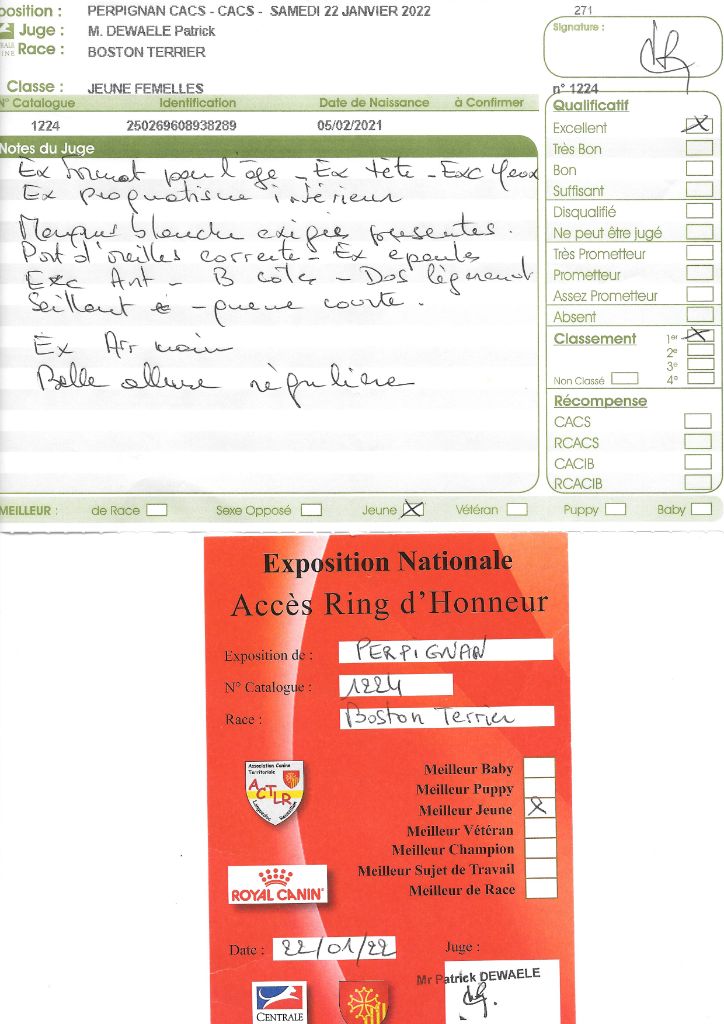 position : PERPIGNAN CACS - CACS - SAMEDI 22 JANVIER 2022
271
Juge : M. DEWAELE Patrick
Race : BOSTON TERRIER
Signature :
Classe : JEUNE FEMELLES
n° 1224
N° Catalogue Identification Date de Naissance à Confirmer
1224 250269608938289 05/02/2021
Notes du Juge
Ex format pour l'âge - Ex tête - Exc yeux
Ex prognatisme inférieur
Marques blanches exigées présentes.
Port d'oreilles correcte - Ex epaules
Exc Ant - B côtes - Dos légèrement
Seillant - queue courte.
Ex Arr main
Belle allure régulière
Qualificatif
Excellent
Très Bon
Bon
Suffisant
Disqualifié
Ne peut être jugé
Très Prometteur
Prometteur
Assez Prometteur
Absent
Classement 1er
2e
3e
Non Classé 4e
Récompense
CACS
RCACS
CACIB
RCACIB
MEILLEUR : de Race Sexe Opposé Jeune Vétéran Puppy Baby
Exposition Nationale
Accès Ring d'Honneur
Exposition de : PERPIGNAN
N° Catalogue : 1224
Race : Boston Terrier
Association Canine
Territoriale
ACTLR
Languedoc Roussillon
Meilleur Baby
Meilleur Puppy
Meilleur Jeune
Meilleur Vétéran
Meilleur Champion
Meilleur Sujet de Travail
Meilleur de Race
ROYAL CANIN
Date : 22/01/22 Juge :
Mr Patrick DEWAELE
CENTRALE